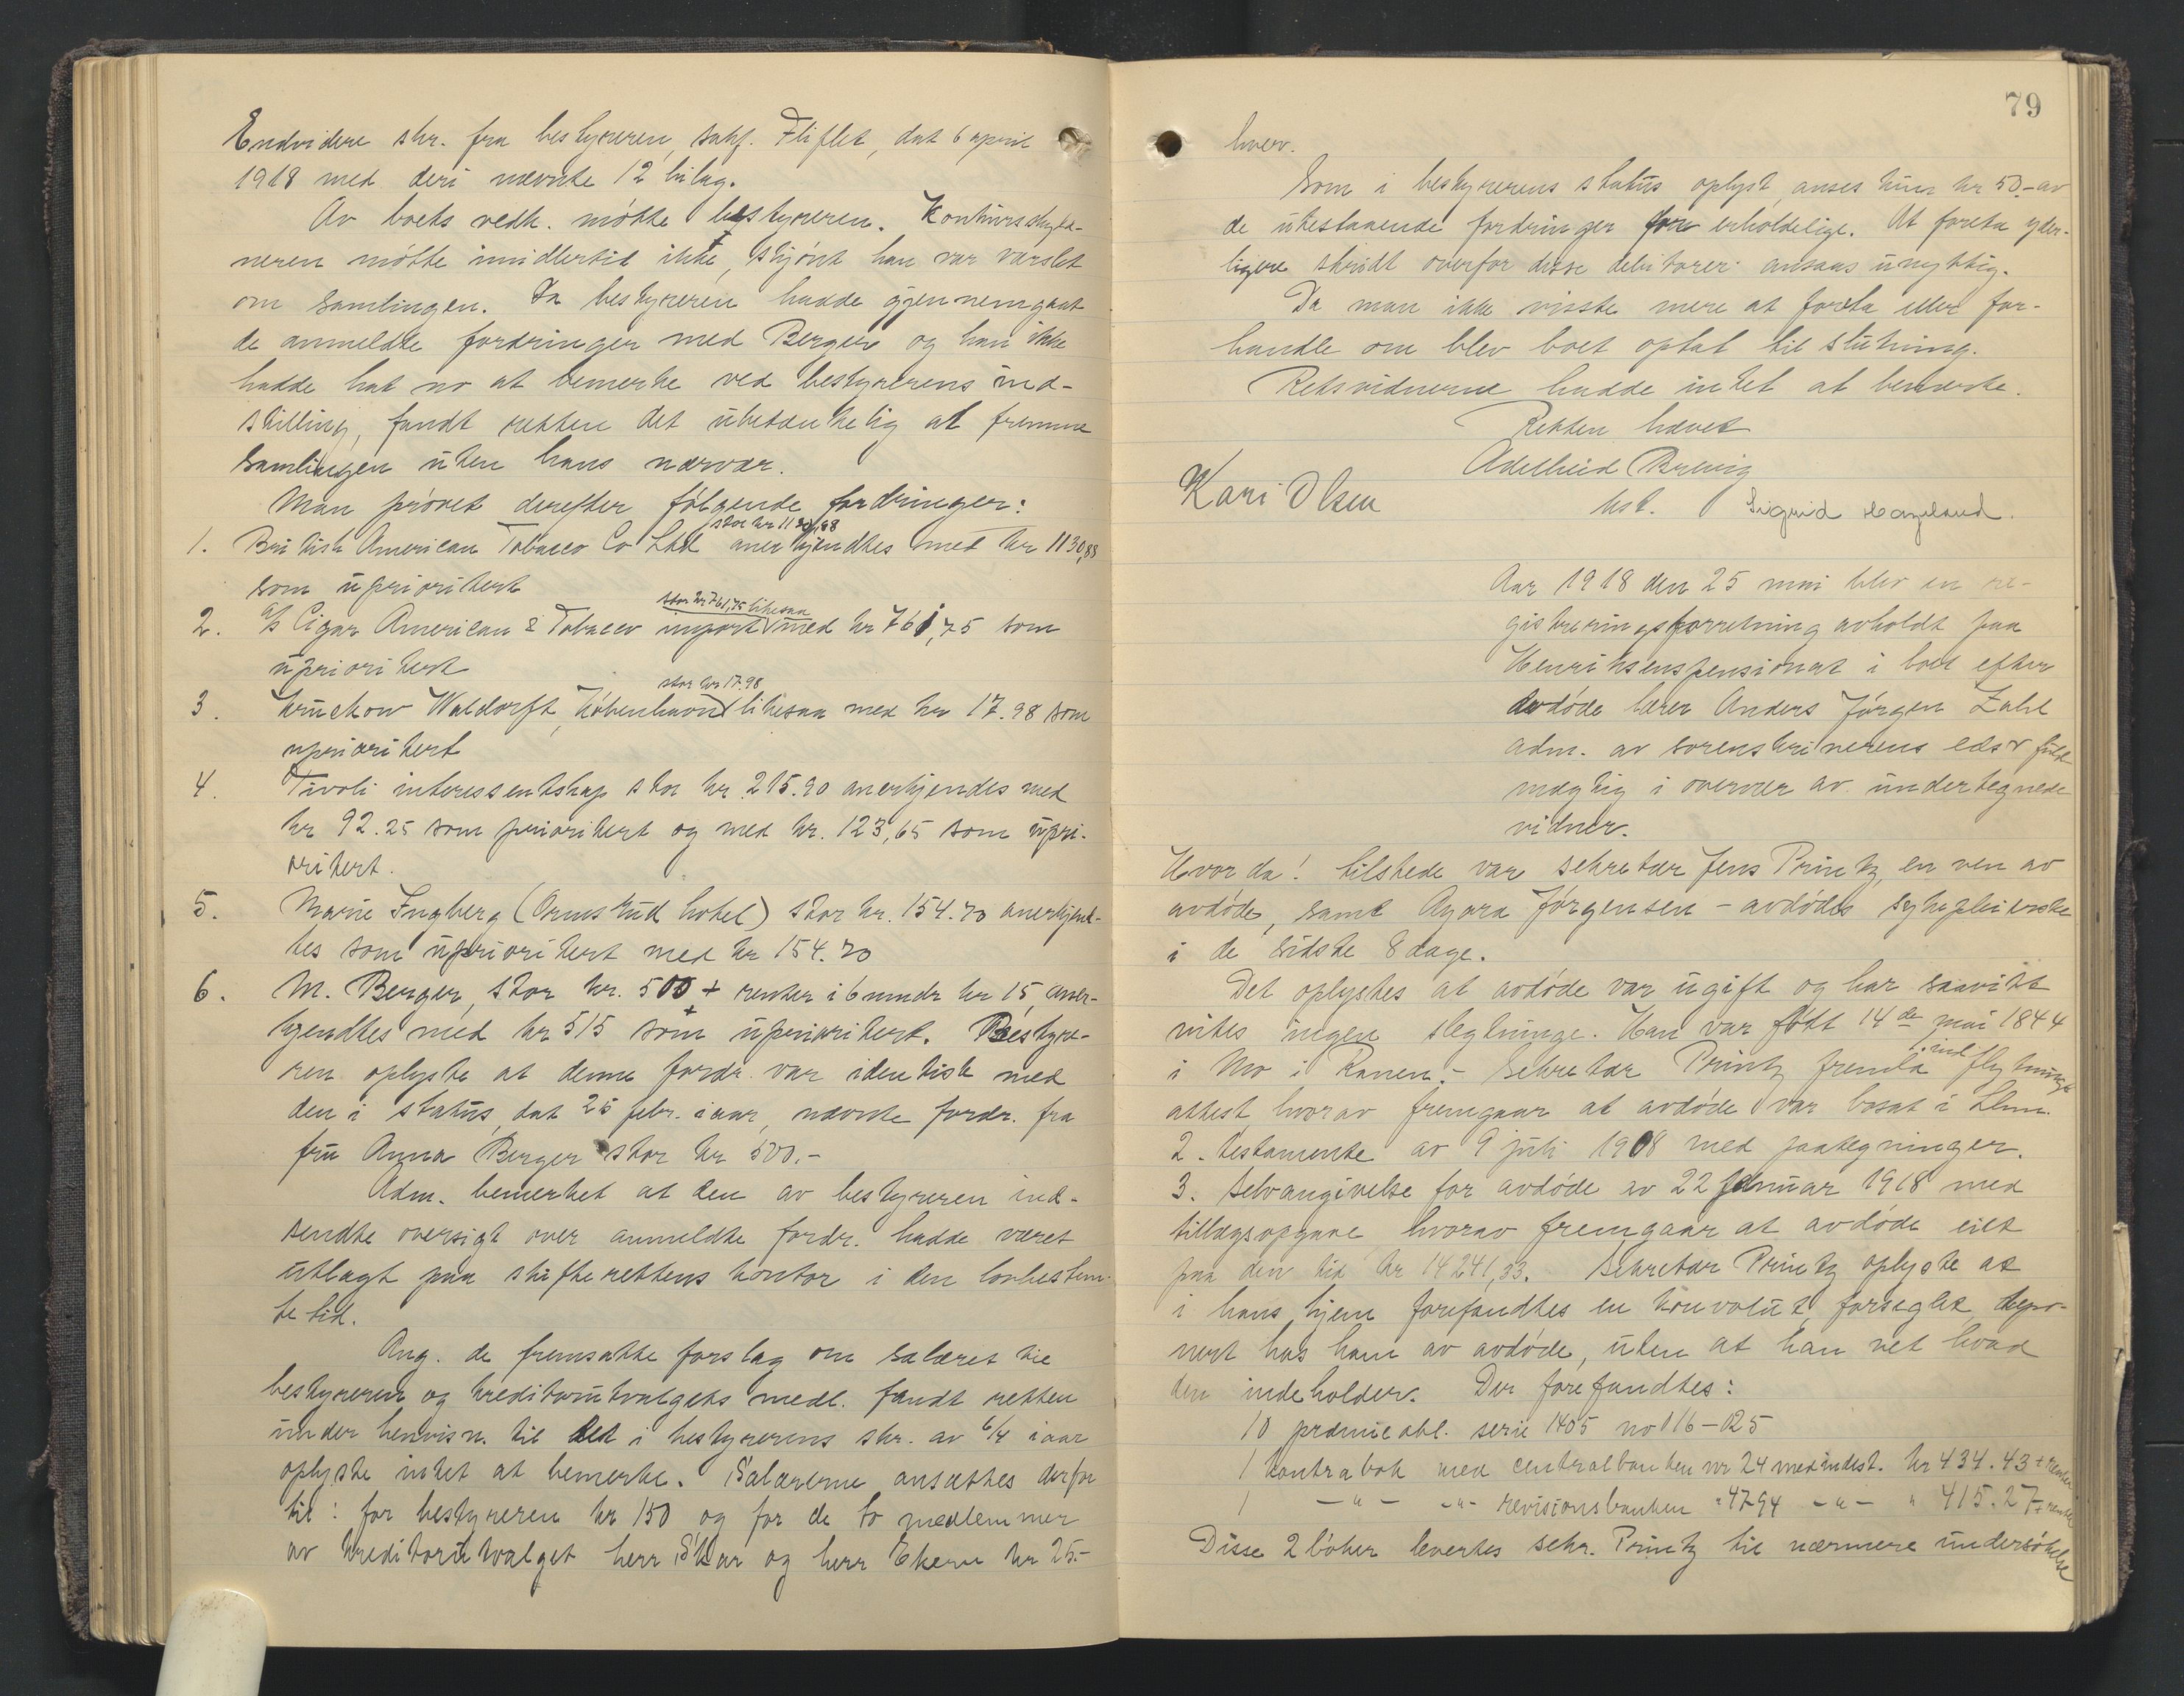 Endvidere skr. fra bestyreren, sakf. Fliflet, dat 6 april
1918 med deri nævnte 12 bilag.
Av boets vedk. møtte bestyreren. Konkursskyld-
neren møtte imidlertid ikke, skjønt han var varslet
om samlingen. Da bestyreren hadde gjennemgaat
de anmeldte fordringer med Berger og han ikke
hadde hat no at bemerke ved bestyrerens ind-
stilling, fandt retten det ubetænkelig at fremme
samlingen uten hans nærvær.
Man prøvet derefter følgende fordringer:
1. British American Tobacco Co Ltd stor kr 1130,88 anerkjendtes med kr 1130,88
som uprioritert
2. A/S Cigar American & Tobacco import stor kr 761,75 likesaa med kr 761,75 som
uprioritert
3. Krückow Waldorft, København stor kr 17.98 likesaa med kr 17.98 som
uprioritert
4. Tivoli interessentskap stor kr. 215.90 anerkjendes med
kr 92.25 som prioritert og med kr. 123,65 som upri-
oritert.
5. Marie Ingberg (Ormstud hotel) stor kr. 154.70 anerkjend-
tes som uprioritert med kr 154.70
6. M. Berger, stor kr. 500 + renter i 6 mndr kr 15 aner-
kjendtes med kr 515 som uprioritert. Bestyre-
ren oplyste at denne fordr. var identisk med
den i status, dat 25 febr. iaar, nævnte fordr. fra
fru Anna Berger stor kr 500.-
Adm. bemerket at den av bestyreren ind-
sendte oversigt over anmeldte fordr. hadde været
utlagt paa skifterettens kontor i den lovbestem-
te tid.
Ang. de fremsatte forslag om salæret til
bestyreren og kreditorutvalgets medl. fandt retten
under henvisn. til det i bestyrerens skr. av 6/4 iaar
oplyste intet at bemerke. Salærerne ansættes derfor
til: for bestyreren kr 150 og for de to medlemmer
av kreditorutvalget herr Skar og herr Ekern kr 25.-
79
hver.
Som i bestyrerens status oplyst, anses kun kr 50.- av
de utestaaende fordringer for erholdelige. At foreta yder-
ligere skridt overfor disse debitorer ansaas unyttig.
Da man ikke visste mere at foreta eller for-
handle om blev boet optat til slutning.
Retsvidnerne hadde intet at bemerke.
Retten hævet
Adelheid Brewig
Kari Olsen
kst. Sigrid Hageland.
Aar 1918 den 25 mai blev en re-
gistreringsforretning avholdt paa
Henriksenspensionat i boet efter
avdøde lærer Anders Jørgen Zahl
adm. av sorenskriverens edsv fuld-
mægtig i overvær av undertegnede
vidner.
Hvor da! tilstede var sekretær Jens Printz, en ven av
avdøde, samt Agora Jørgensen – avdødes sykepleierske
i de sidste 8 dage.
Det oplystes at avdøde var ugift og har saavidt
vites ingen slegtninge. Han var født 14de mai 1844
i Mo i Ranen. – Sekretær Printz fremla 1. indflytnings
attest, hvorav fremgaar at avdøde var bosat i Lhm.
2. testamente av 9 juli 1908 med paategninger.
3. selvangivelse for avdøde av 22 januar 1918 med
tillægsopgave hvorav fremgaar at avdøde eiet
paa den tid kr 14241,33. Sekretær Printz oplyste at
i hans hjem forefandtes en konvolut, forseglet, depo-
nert hos ham av avdøde, uten at han vet hvad
den indeholder. Der forefandtes:
10 præmieobl. serie 1405 no 016–025
1 kontrabok med centralbanken nr 24 med indest. kr 434.43 + renter
1 –"– –"– revisionsbanken " 4794 –"– " 415.27 + renter
Disse 2 bøker levertes sekr. Printz til nærmere undersøkelse